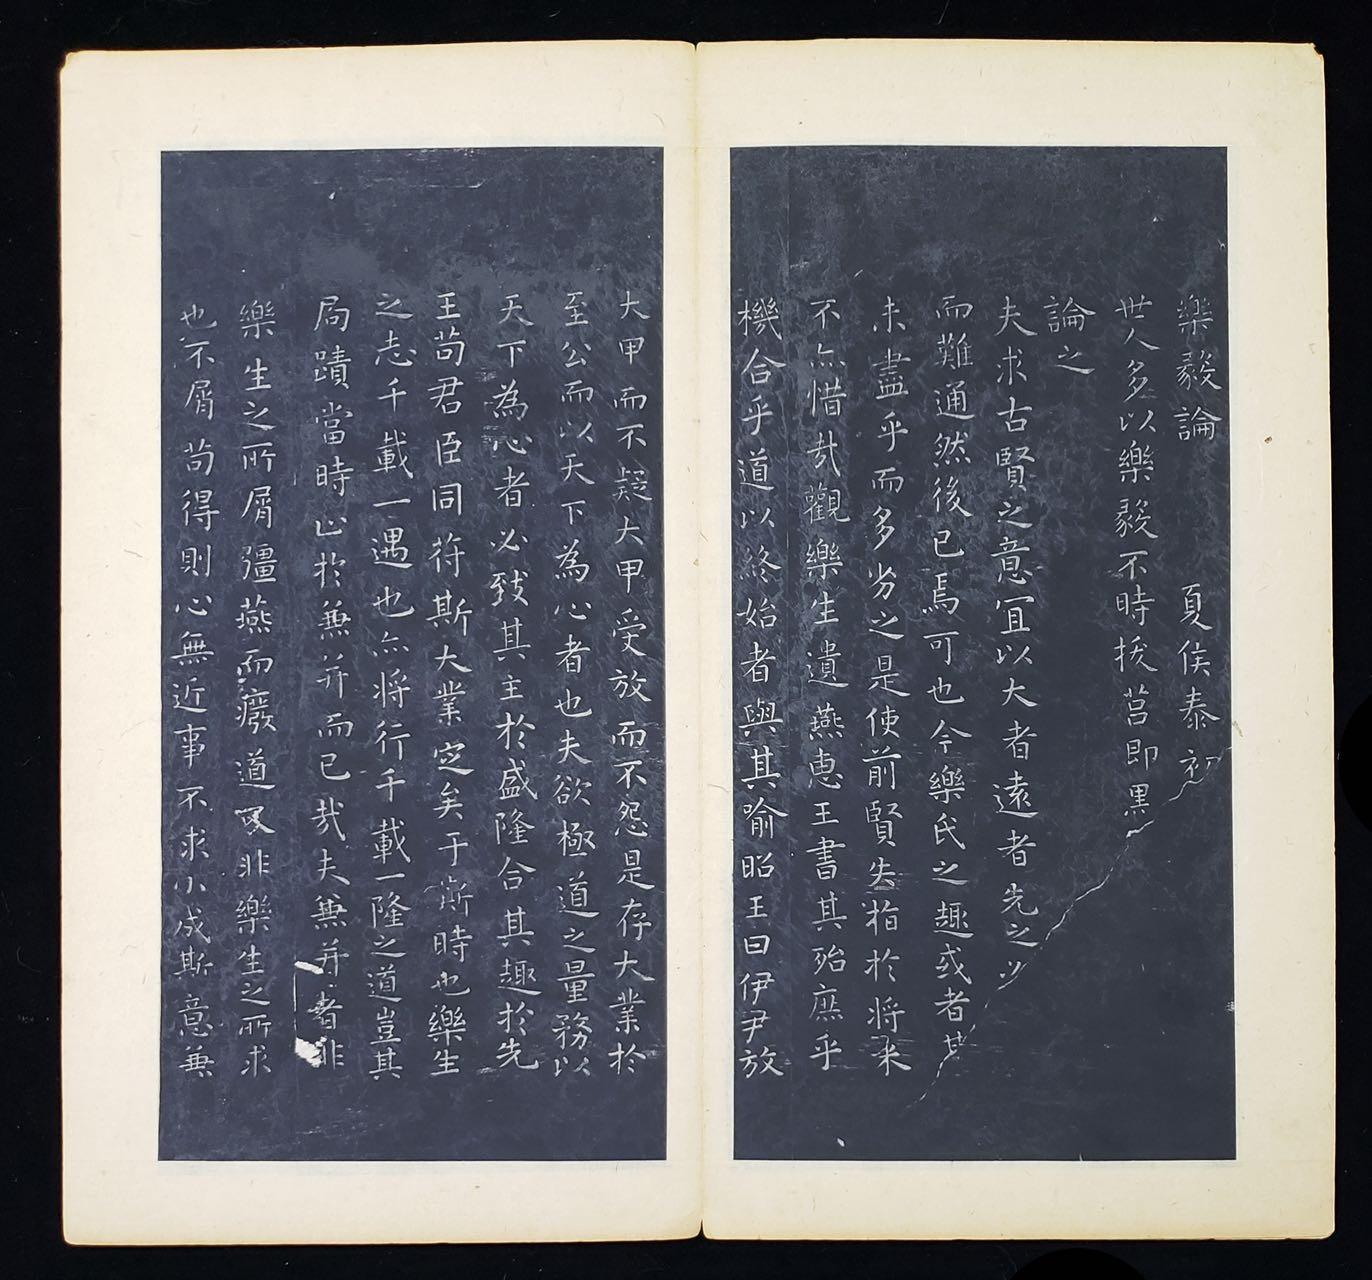 樂毅論 夏侯泰初
世人多以樂毅不時拔莒即墨
論之
夫求古賢之意宜以大者遠者先之必
而難通然後已焉可也今樂氏之趣或者其
未盡乎而多劣之是使前賢失指於將來
不亦惜哉觀樂生遺燕惠王書其殆庶乎
機合乎道以終始者與其喻昭王曰伊尹放
大甲而不疑大甲受放而不怨是存大業於
至公而以天下為心者也夫欲極道之量務以
天下為心者必致其主於盛隆合其趣於先
王苟君臣同符斯大業定矣于斯時也樂生
之志千載一遇也亦將行千載一隆之道豈其
局蹟當時止於兼并而已哉夫兼并者非
樂生之所屑彊燕而廢道又非樂生之所求
也不屑苟得則心無近事不求小成斯意兼